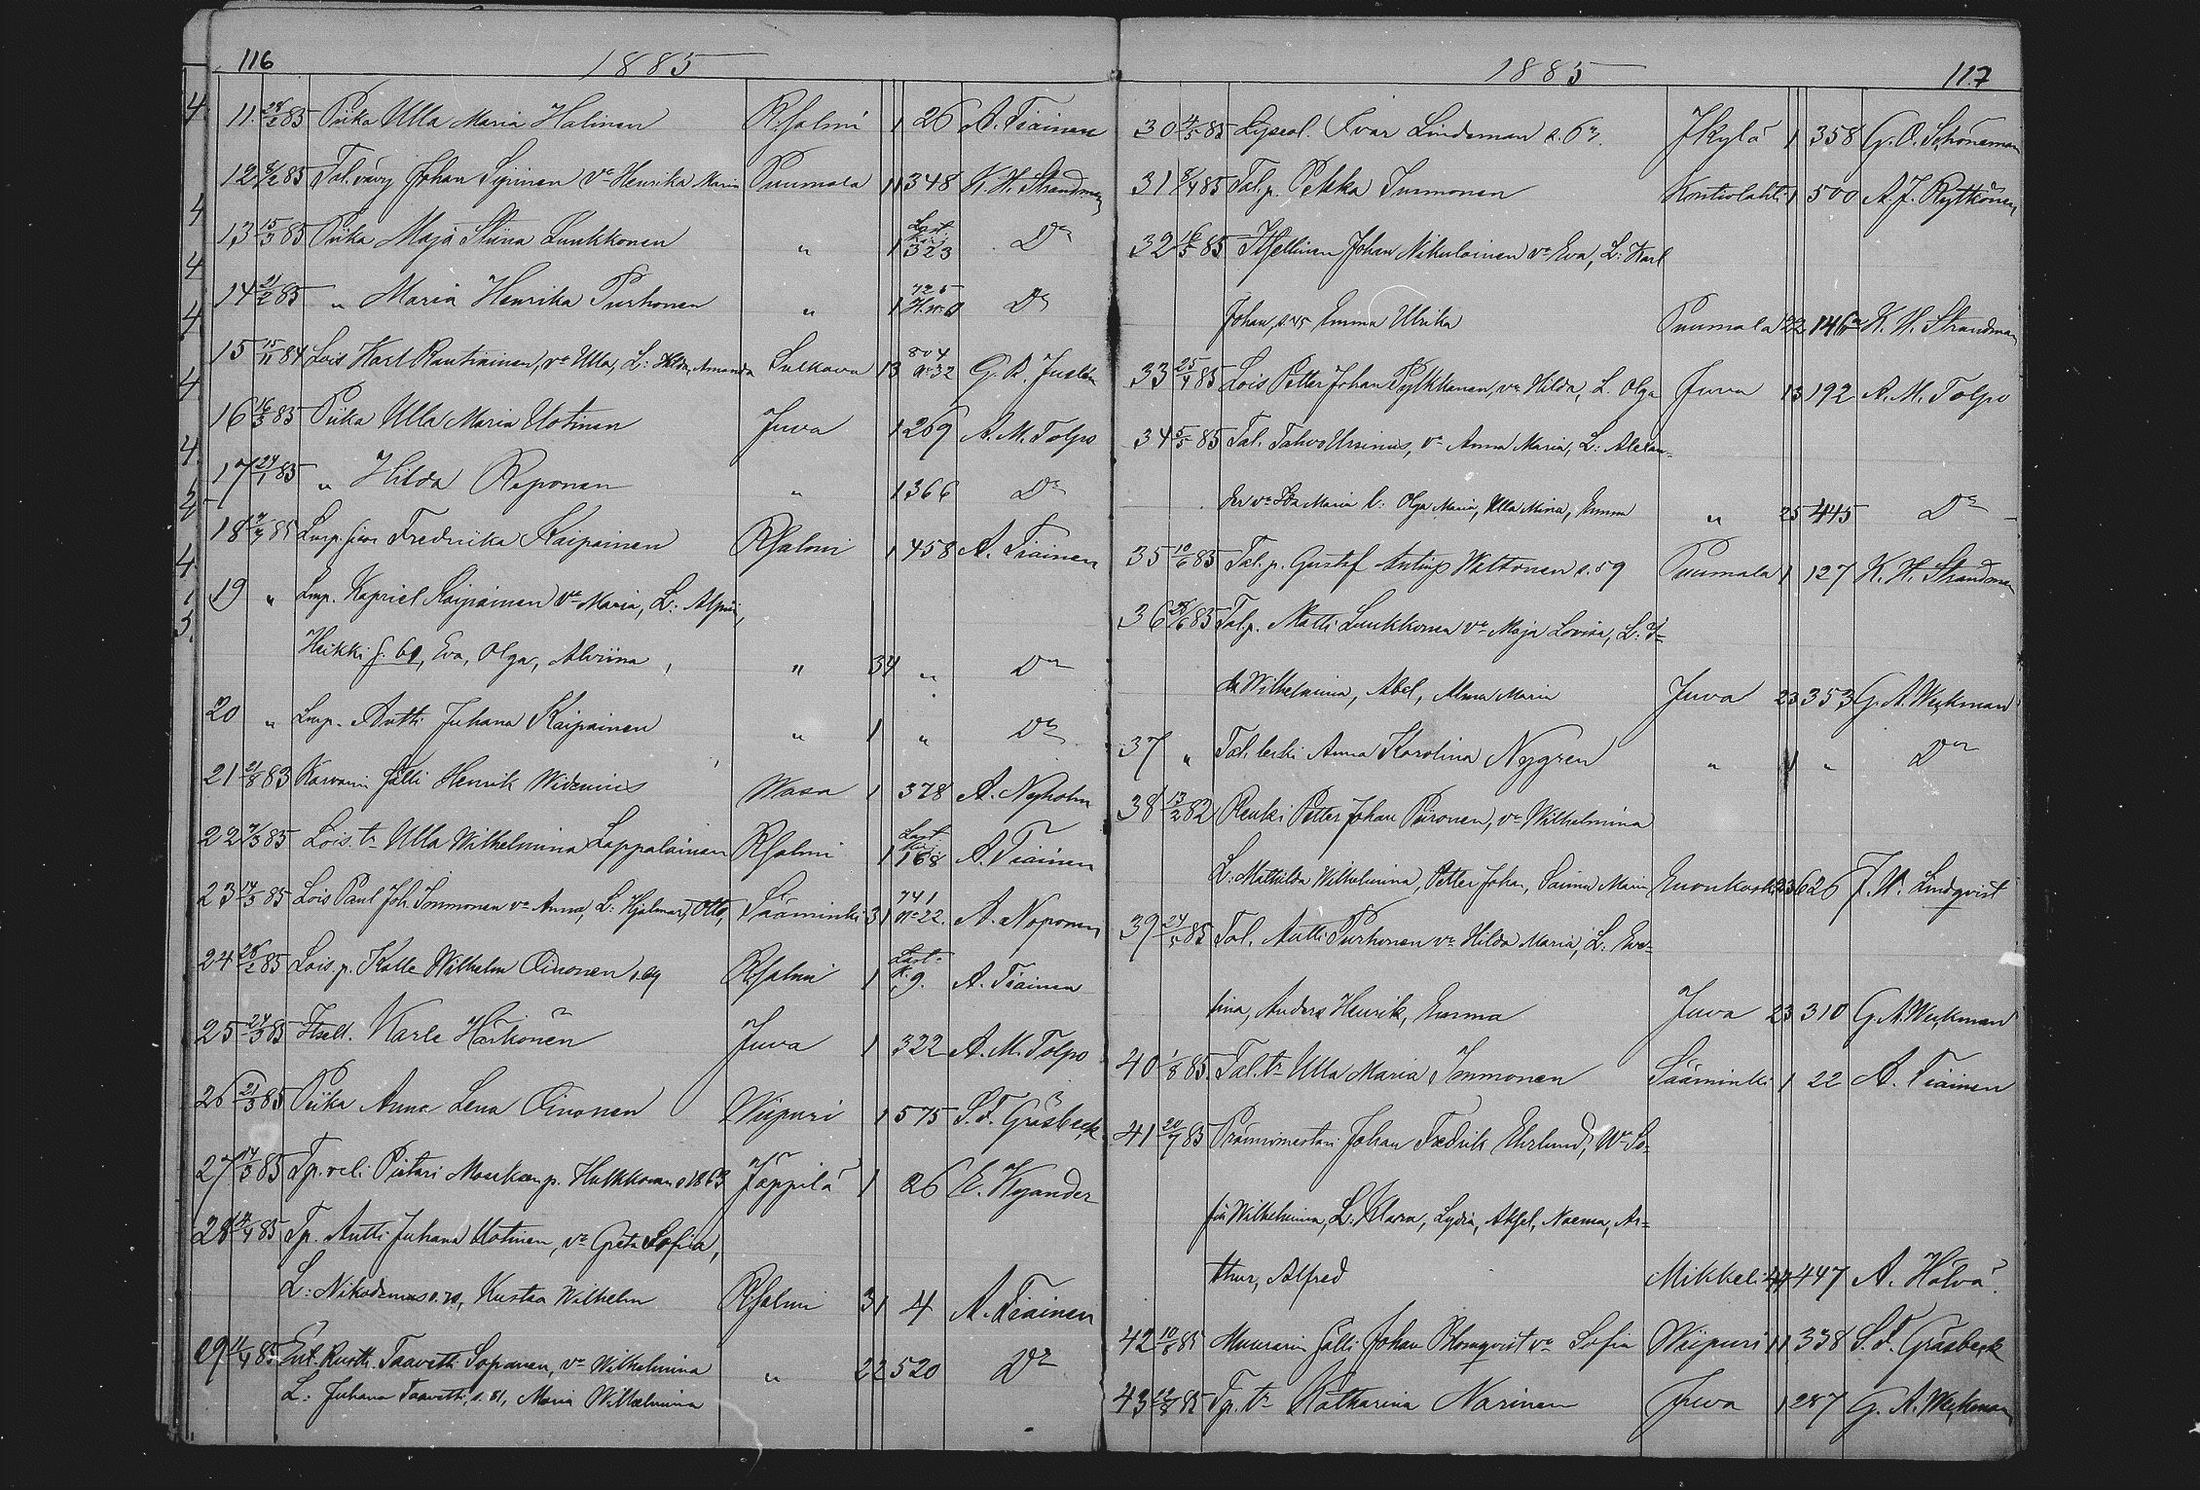 116 1885
11. 28/2 85 Piika Ulla Maria Halinen R:salmi 1 26 A. Tiainen
12 85 Tal. vävy Johan Syrinen va Henrika Maria Puumala 11 348 K. H. Strandman
13 15/3 85 Piika Maja Stiina Luukkonen " 1 323 Do
14 85 " Maria Henrika Purhonen " 1 Do
15 15/11 84 Lois Karl Rautiainen, va Ulla, L: Hilda, Amanda Sulkava 13 804 No 32
16 16/3 85 Piika Ulla Maria Uotinen Juva 1 269 A. M. Tolpo
17 85 " Hilda Reponen " 1 366 Do
18 85 Fredrika Kaipainen R:salmi 1 458 A. Tiainen
19 " Lmp. Kapriel Kaipainen va Maria, L: Alpiin,
Heikki s. 61, Eva, Olga, Alviina, " 34 " Do
20 " Lmp. Antti Juhana Kaipainen " 1 " Do
21 21/8 83 Karvarin sälli Henrik Widenius Wasa 1 378 A. Nyholm
22 85 Lois. tr Ulla Wilhelmina Lappalainen R:salmi 1 168 A. Tiainen
23 85 Lois Paul Joh. Immonen va Anna, L: Hjalmar, Otto, Sääminki 31 741 No 22. A. Noponen
24 85 Lois. p. Kalle Wilhelm Oinonen s. 69 R:salmi 1 9. A. Tiainen
25 85 Itsell. Karle Härkönen Juva 1 322 A. M. Tolpo
26 85 Piika Anna Lena Oinonen Wiipuri 1 575 S. F. Gräsbeck
27 85 Tp. veli Pietari Maukp. Hulkkonen s 1863 Jäppilä 1 26 E. Kyander
28 85 Tp. Antti Juhana Uotinen, va Greta Sofiia,
L: Nikodemus s. 70, Kustaa Wilhelm R:salmi 31 4 A. Tiainen
29 85 Taavetti Sopanen, va Wilhelmina " 22 520 Do
L: Juhana Taavetti, s. 81, Maria Wilhelmina
1885 117
30 4/5 85 Lyseol. Ivar Lindeman s. 67. J:kylä 1 358 G. O. Schöneman
31 85 Tal. p. Pekka Immonen Kontiolahti 1 500 A. J. Rytkönen
32 85 Itsellinen Johan Nikulainen va Eva, L: Karl
Johan, s. 45 Emma Ulrika Puumala 22 146 K. H. Strandman
33 25/4 85 Lois Petter Johan Pylkkänen, va Hilda, L. Olga Juva 13 192 A. M. Tolpo
34 5/5 85 Tal. Tahvo Ursinus, va Anna Maria, L: Alexan-
der va Ida Maria L: Olga Maria, Ulla Mina, Emma " 25 445 Do
35 10/6 85 Tal. p. Gustaf Anting Wattonen s. 59 Puumala 1 127 K. H. Strandman
36 85 Tal. p. Matti Luukkonen va Maja Lovisa, L: I-
da Wilhelmina, Abel, Alma Maria Juva 23 353 G. A. Weckman
37 " Tal. leski Anna Karolina Nygren " 1 " Do
38 13/2 82 Renki Petter Johan Piironen, va Wilhelmina
L: Mathilda Wilhelmina, Petter Johan, Saima Maria Enonkoski 23 626 J. W. Lindqvist
39 85 Tal. Antti Purhonen va Hilda Maria, L. Eve-
lina, Anders Henrik, Emma Juva 23 310 G. A. Weckman
40 1/8 85 Tal. tr Ulla Maria Immonen Sääminki 1 22 A. Tiainen
41 85 Johan Fredrik Ehrlund, Wa So-
fia Wilhelmina, L. Klara, Lydia, Aksel, Naema, Ar-
thur, Alfred Mikkeli 447 A. Hälvä.
42 85 Muurarin sälli Johan Blomqvist va Sofia Wiipuri 11 338 S. F. Gräsbeck
43 85 Tp. tr Katharina Narinen Juva 1 287 G. A. Weckman